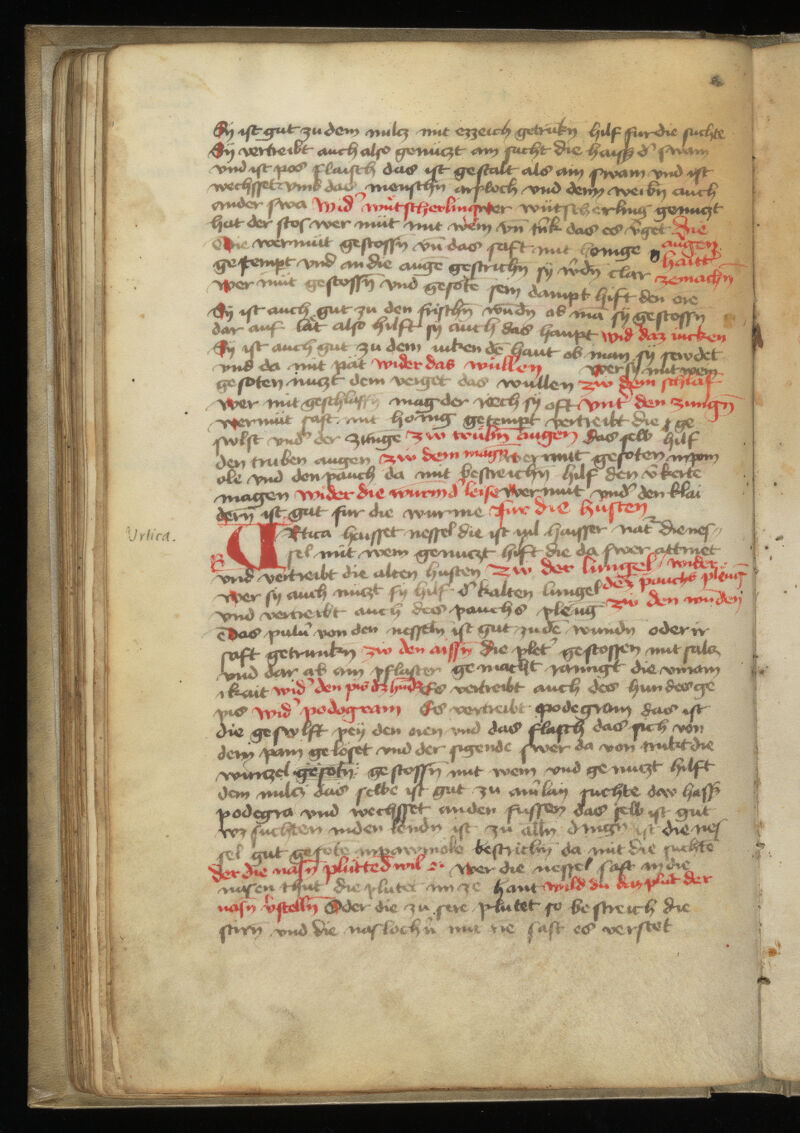 Sy ist gut zu dem milcz mit ezzeich getrukn hilf fur die suchte
Sy vertreibt auch also genuczt ain sucht die haisst d' swam
vnd ist pos flaisch das ist gestalt als ain swam vnd ist
wechsset vmb das menschn arsloch vnd dem weibn auch
ander swa wid' wutscherling wer wutscherling genuczt
hat der stos wer mut mit wein vn trik das es v'get die
Die wermut gestossn vn das saft mit honige augen
getempt vnd an die auge gestrichn sy w'dn clar haitt'
wer mut gestossn vnd gesote sein dampt hift den ore zemachn
Sy ist auch gut zu den frischn wudn ob ma sy gestossn
dar auf lat also hilft sy auch das haupt wid daz iucken
Sy ist auch gut zu dem iuken de haut ob man sy sewdet
vnd da mit pat wider das wullen wer sy mit wein
gesoten nuczt dem verget das wullen zw dem schlaf
wer mit geschlaffn mag der riech sy oft vnt' den zungn
wermut saft mit honig getempt vertreibt die ge
swlst vnd' der zunge zw trubn augen das selb hilf
den truben augen zw dem magn wermut gesoten in pom
ole vnd den pauch da mit bestreichn hilf den v'kerte
magen wider die wurm d' leise wermut vnd' den klai
dern ist gut fur die wurme fur die husten
Vrtica.
VRtica haisset nessel die ist uil haisser nat' die nes
sel mit wein genuczt hift die da swer attmet
vnd vertreibt die alten husten zw der lungel / wider
wer sy auch nuczt sy hilf d' kalten lungel des pauchs pleug
vnd vertreibt auch des pauchs pleug zw den wunden
Das pulu' von den nesseln ist gut zu de wundn oder ir
saft getrunkn zw den aissn die plet' gestossen mit salcz
vnd dar ab ain pflaster gemacht rainigt die vnrain
ikait wid' den pis d' hund Es vertreibt auch des hundes ge
pis wid' podogram Es vertreibt podegram das ist
die geswlft pey den oren vnd das flaisch das sich von
dem pain geloset vnd der sigende swer da von trukt die
wurczel gesotn gestossn mit wein vnd genuczt hilft
dem milcz das selbe ist gut zu aller suchte dew haisst
podegra vnd wechsset an den fussen das selb ist gut
suchten in den lendn ist zu alln dingn ist die nes
sel gut gesote in pawmole bestrichn da mit die suchte
der die nasn plutted wil wer die nessel saft in die
nasen thut die plutet im ze hant wild du das plut der
nasn v'stelln Oder die zu sere plutet so bestreich die
stirn vnd die naslochn mit ne saft es verstet